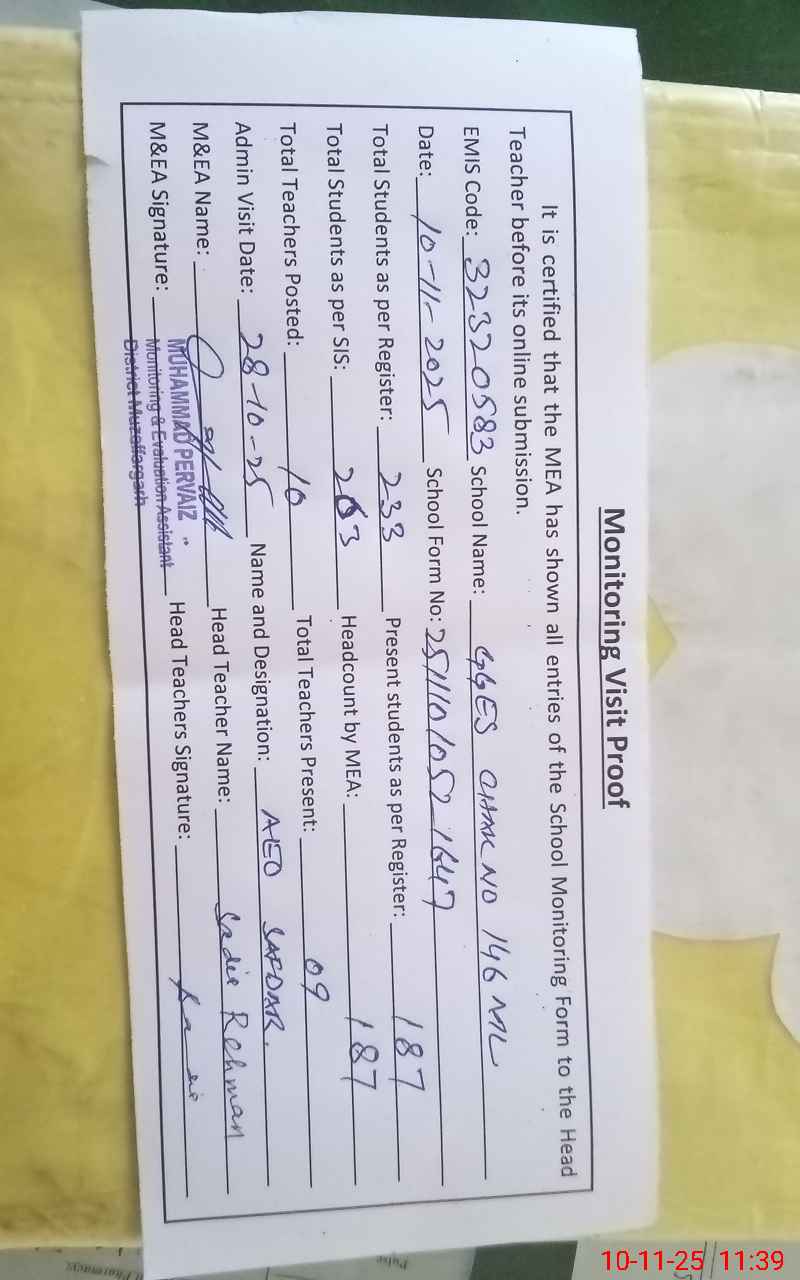 Monitoring Visit Proof
It is certified that the MEA has shown all entries of the School Monitoring Form to the Head
Teacher before its online submission.
EMIS Code: 32320583 School Name: GGES CHAK NO 146 ML
Date: 10-11-2025 School Form No: 25111010521647
Total Students as per Register: 233 Present students as per Register: 187
Total Students as per SIS: 263 Headcount by MEA: 187
Total Teachers Posted: 10 Total Teachers Present: 09
Admin Visit Date: 28-10-25 Name and Designation: AEO SAFDAR.
M&EA Name: Head Teacher Name: Sadia Rehman
M&EA Signature: Head Teachers Signature: Sadia
MUHAMMAD PERVAIZ
Monitoring & Evaluation Assistant
District Muzaffargarh
Pharmacy
Pulse
10-11-25 11:39